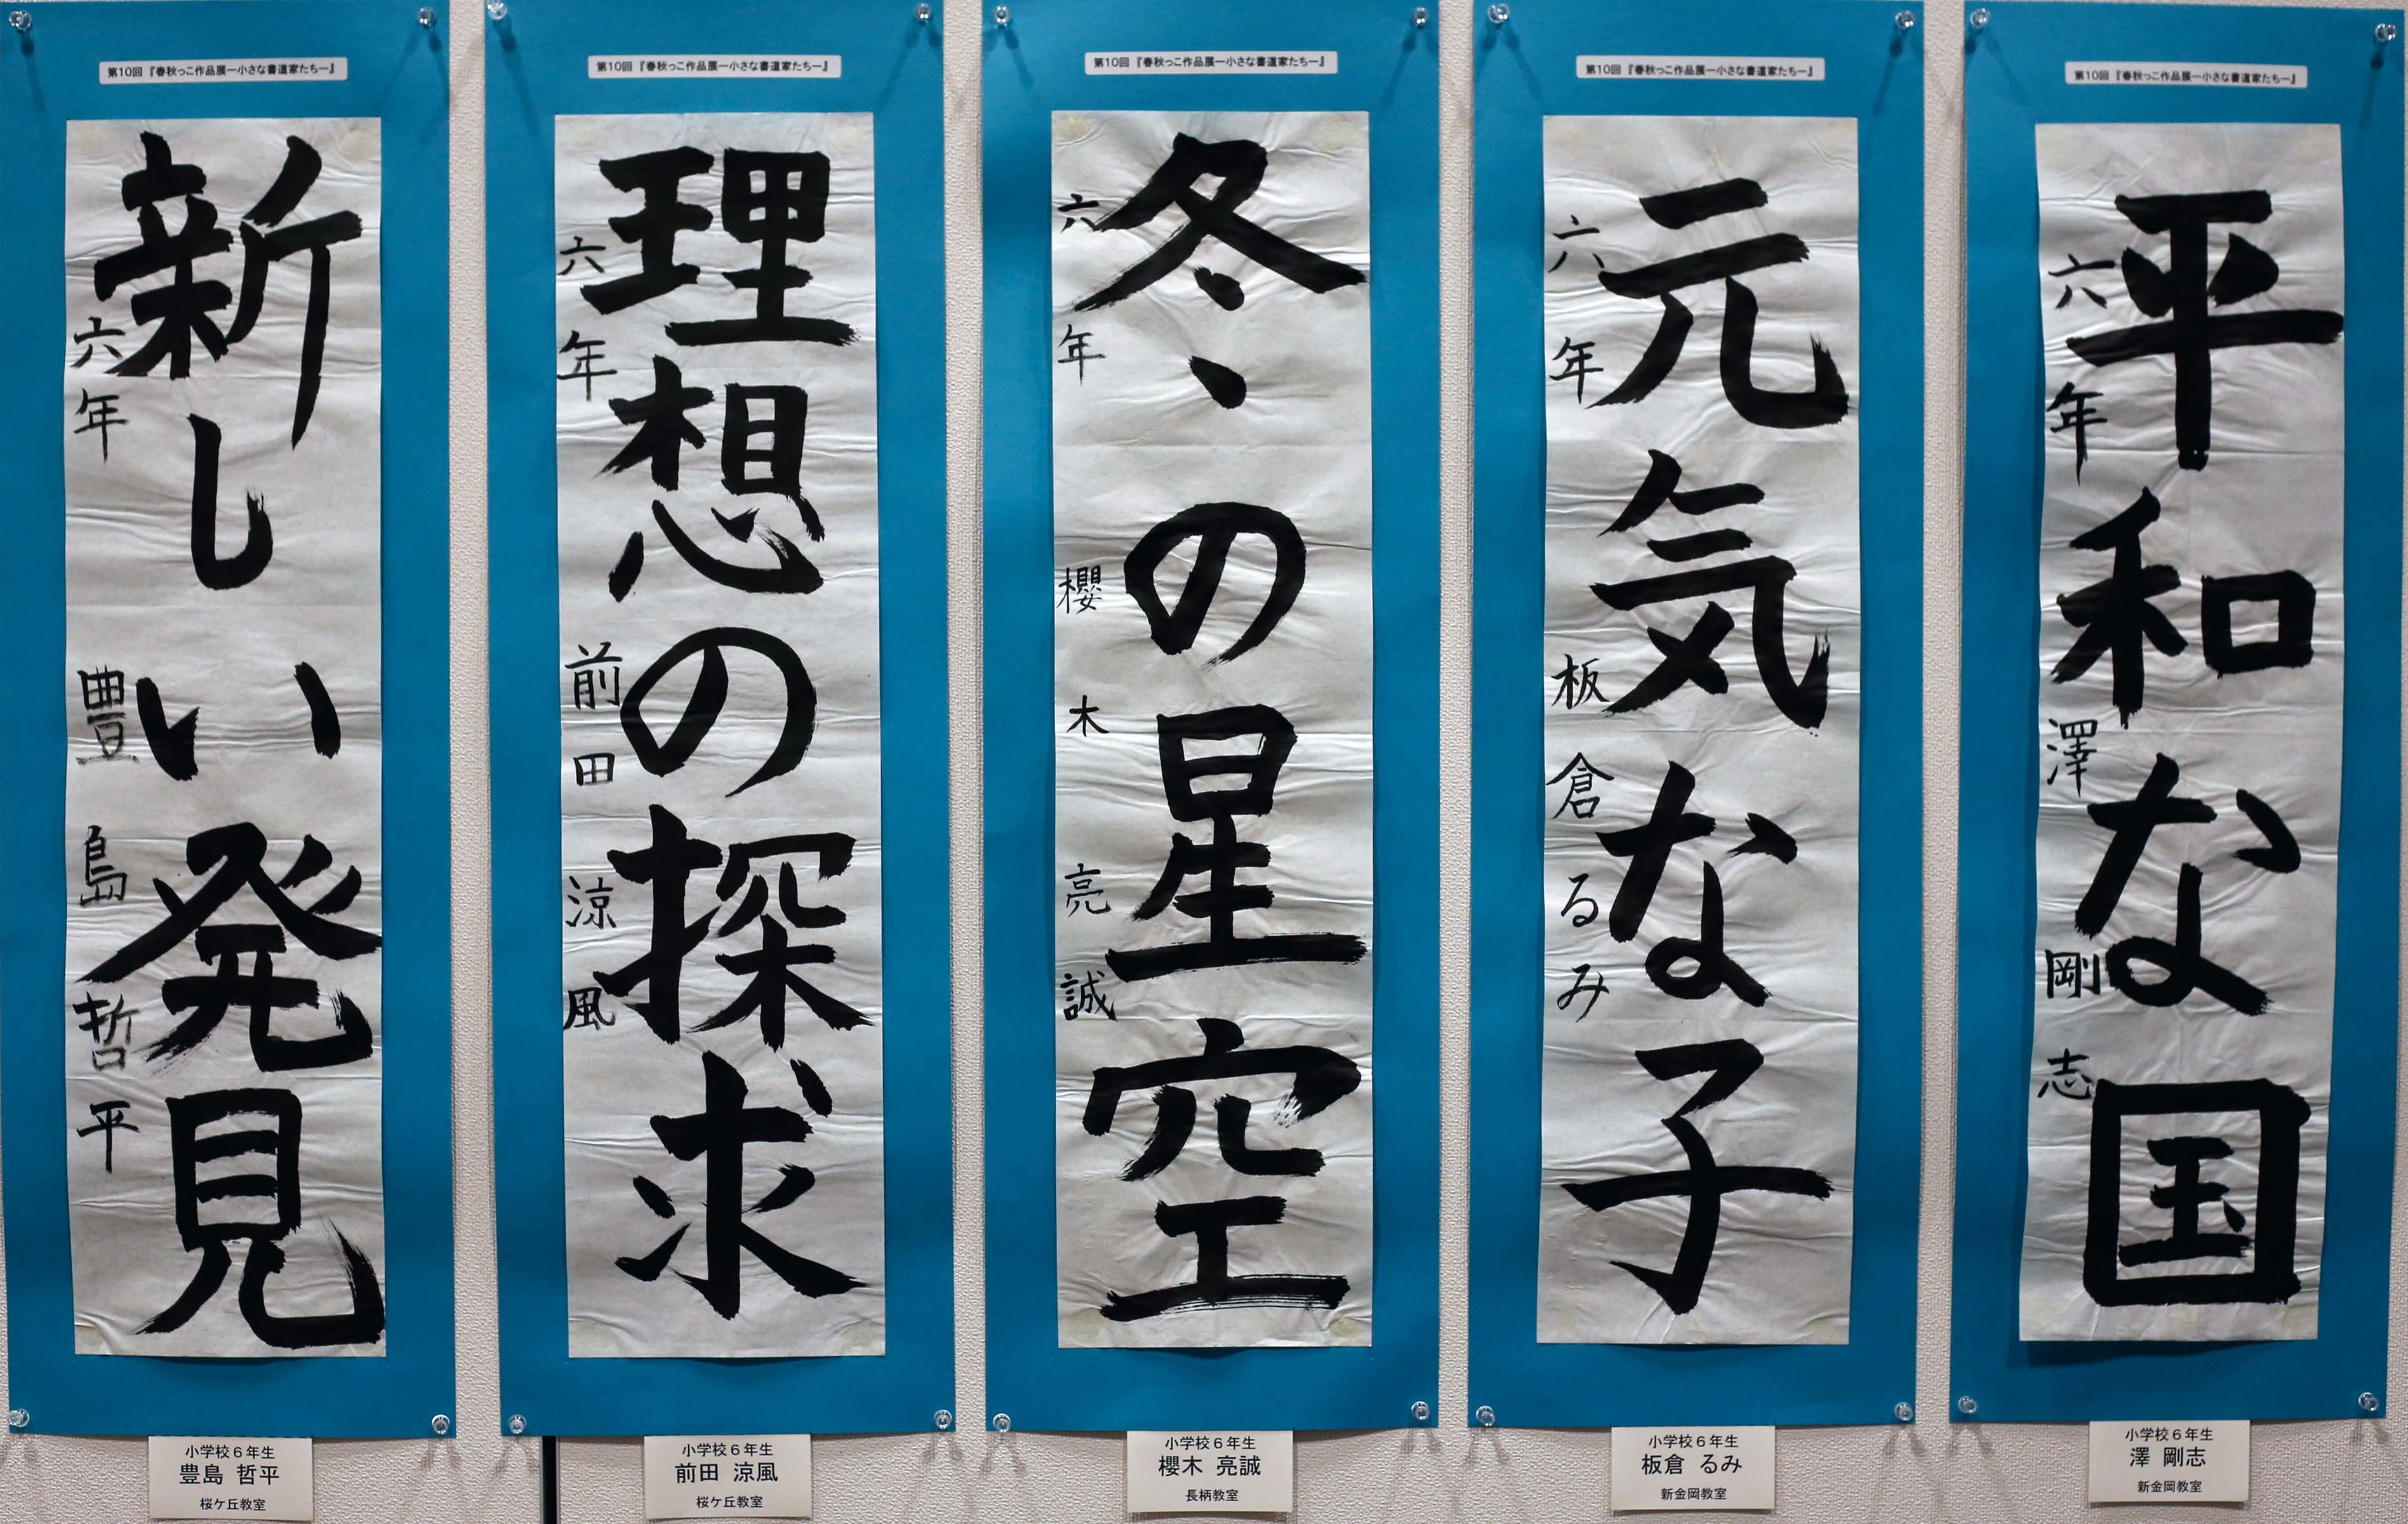 第10回『春秋っこ作品展ー小さな書道家たちー』
新しい発見
六年 豊島哲平
小学校6年生
豊島 哲平
桜ケ丘教室
第10回『春秋っこ作品展ー小さな書道家たちー』
理想の探求
六年 前田涼風
小学校6年生
前田 涼風
桜ケ丘教室
第10回『春秋っこ作品展ー小さな書道家たちー』
冬、の星空
六年 櫻木亮誠
小学校6年生
櫻木 亮誠
長柄教室
第10回『春秋っこ作品展ー小さな書道家たちー』
元気な子
六年 板倉るみ
小学校6年生
板倉 るみ
新金岡教室
第10回『春秋っこ作品展ー小さな書道家たちー』
平和な国
六年 澤剛志
小学校6年生
澤 剛志
新金岡教室